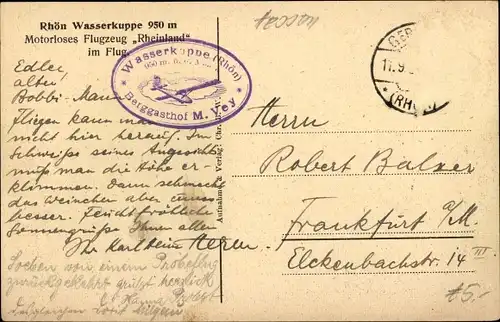 Rhön Wasserkuppe 950 m
Motorloses Flugzeug „Rheinland"
im Flug.
Wasserkuppe (Rhön)
950 m. ü. d. M.
Berggasthof M. Vey
Hessen
GER
11.9
(RHÖN)
Edler,
alter
Bobbi-Mann
Fliegen kann man
nicht hier herauf. Im
Schweiße seines Angesichts
muß man die Höhe er-
klimmen. Dann schmeckt
das Weinchen aber umso
besser. Feucht fröhliche
Sonnengrüße Ihnen allen
Ihr Karlheinz
Soeben von einem Probeflug
zurückgekehrt grüßt herzlich
Hanna
Aufnahme &
Herrn
Robert Balzer
Frankfurt a/M.
Elckenbachstr. 14 III.
5.-